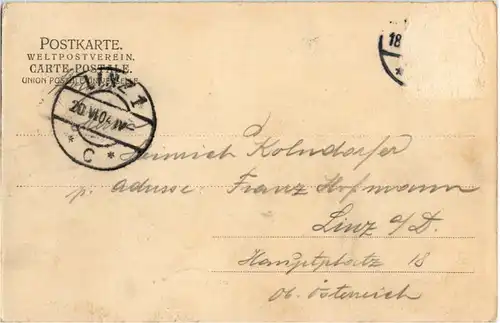 POSTKARTE.
WELTPOSTVEREIN.
CARTE-POSTALE.
UNION POSTALE UNIVERSELLE
LINZ 1
20. VI. 04. IV
* C *
18
*
Heinrich Kolndorfer
p. adresse Franz Hofmann
Linz a/D.
Hauptplatz 18
Ob. Österreich